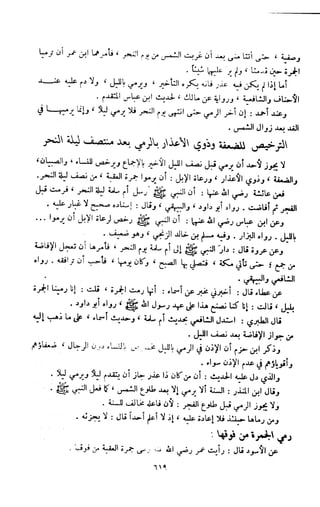 وصفية ، حتى أتتا منى بعد أن غربت الشمس من يوم النحر ، فأمرهما ابن عمر أن ترميا
الجمرة حين قدمتا ، ولم ير عليهما شيئاً .
أما إذا لم يكن فيه عذر فانه يكره التأخير ، ويرمي بالليل ، ولا دم عليه عند
الأحناف والشافعية ، ورواية عن مالك ، لحديث ابن عباس المتقدم .
وعند أحمد : إن أخر الرمي حتى انتهى يوم النحر فلا يرمي ليلاً ، وإنما يرميها في
الغد بعد زوال الشمس .
الترخيص للضعفة وذوي الأعذار بالرمي بعد منتصف ليلة النحر
لا يجوز لأحد أن يرمي قبل نصف الليل الأخير بالإجماع ويرخص للنساء ، والصبيان ،
والضعفة ، وذوي الأعذار ، ورعاة الإبل : أن يرموا جمرة العقبة ، من نصف ليلة النحر .
فعن عائشة رضي الله عنها : أن النبي ﷺ أرسل أم سلمة ليلة النحر ، فرمت قبل
الفجر ثم أفاضت . رواه أبو داود ، والبيهقي ، وقال : إسناده صحيح لا غبار عليه .
وعن ابن عباس رضي الله عنهما : أن النبي ﷺ رخص لرعاة الإبل أن يرموا ...
بالليل . رواه البزار . وفيه مسلم بن خالد الزنجي ، وهو ضعيف .
وعن عروة قال : دار النبي ﷺ إلى أم سلمة يوم النحر ، فأمرها أن تعجل الإفاضة
من جمع ، حتى تأتي مكة ، فتصلي بها الصبح ، وكان يومها ، فأحب أن توافقه . رواه
الشافعي والبيهقي .
عن عطاء قال : أخبرني مخبر عن أسماء : أنها رمت الجمرة ، قلت : إنا رمينا الجمرة
بليل ، قالت : إنا كنا نصنع هذا على عهد رسول الله ﷺ ، رواه أبو داود .
قال الطبري : استدل الشافعي بحديث أم سلمة ، وحديث أسماء ، على ما ذهب إليه
من جواز الإفاضة بعد نصف الليل .
وذكر ابن حزم أن الإذن في الرمي بالليل للنساء دون الرجال ، ضعفاؤهم
وأقوياؤهم في عدم الإذن سواء .
والذي دل عليه الحديث : أن من كان ذا عذر جاز أن يتقدم ليلاً ويرمي ليلاً .
وقال ابن المنذر : السنة ألا يرمي إلا بعد طلوع الشمس ، كما فعل النبي ﷺ .
ولا يجوز الرمي قبل طلوع الفجر : لأن فاعله مخالف للسنة .
ومن رماها حينئذ فلا إعادة عليه ، إذ لا أعلم أحداً قال : لا يجزئه .
رمي الجمرة من فوقها :
عن الأسود قال : رأيت عمر رضي الله رمى جمرة العقبة من فوقها .
٦١٩